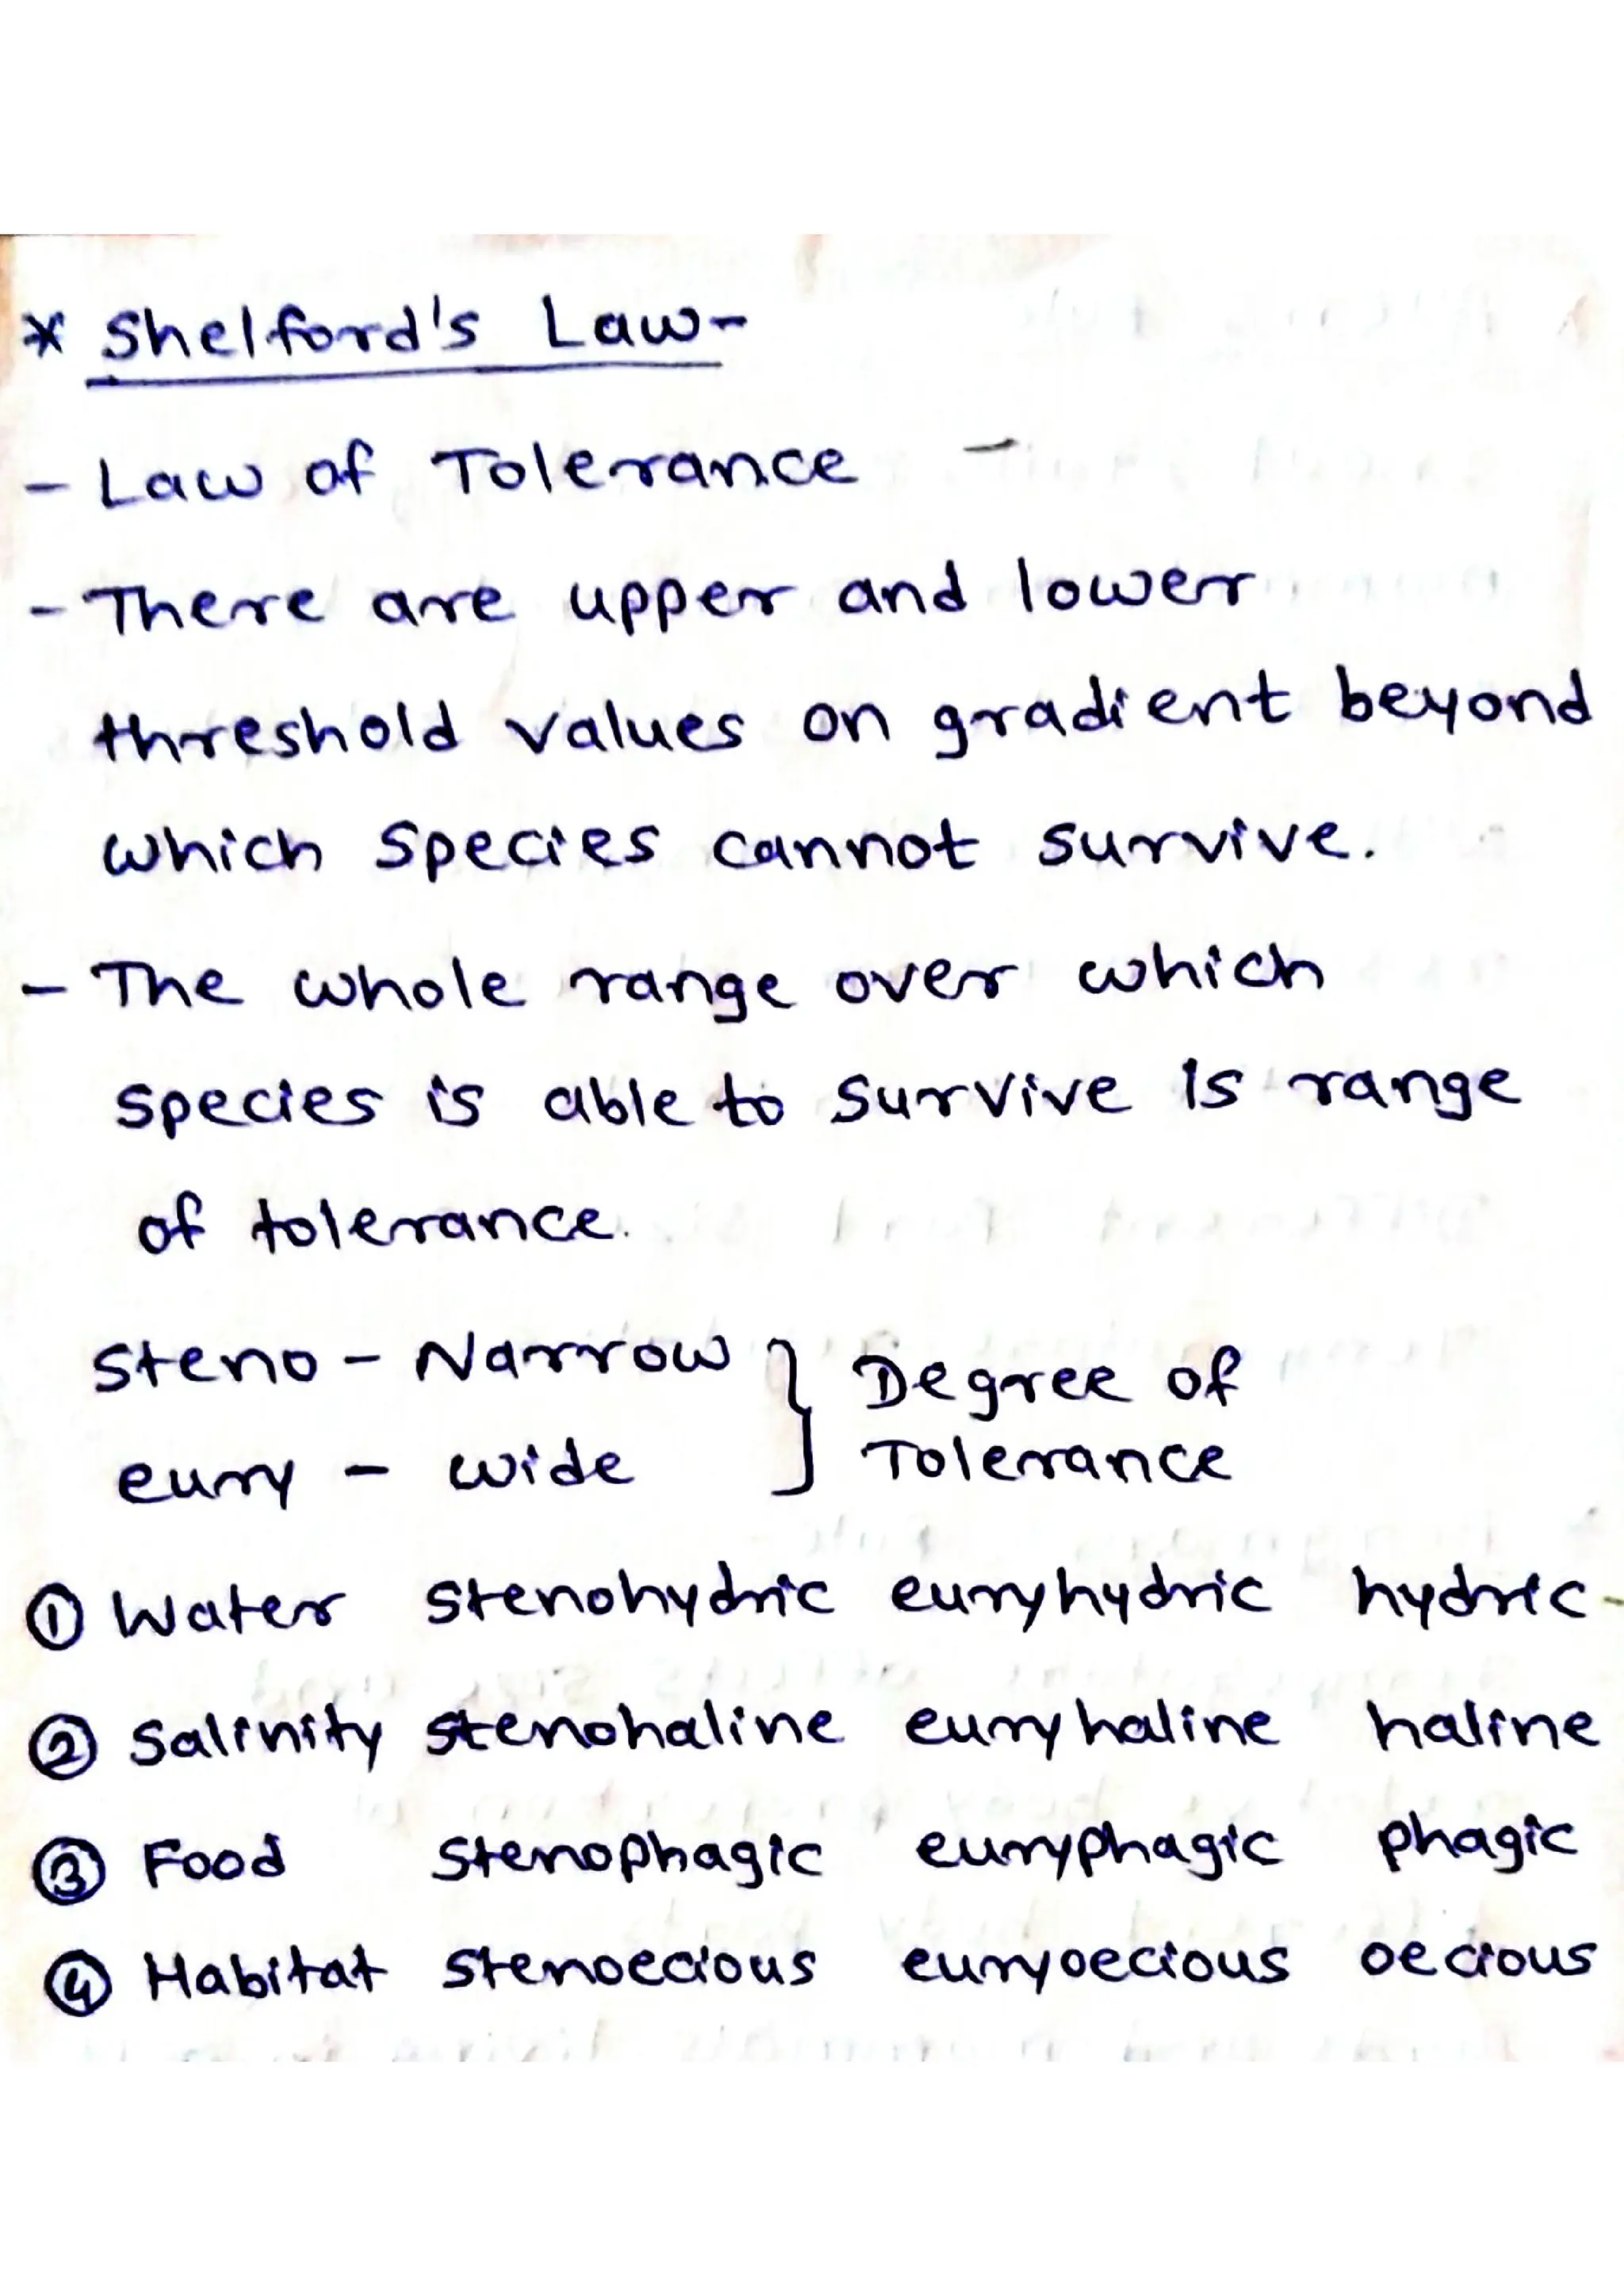 * Shelford's Law-
- Law of Tolerance -
- There are upper and lower
threshold values on gradient beyond
which species cannot survive.
- The whole range over which
species is able to survive is range
of tolerance.
Steno - Narrow } Degree of
eury - wide } Tolerance
① Water stenohydric euryhydric hydric-
② Salinity stenohaline euryhaline haline
③ Food stenophagic euryphagic phagic
④ Habitat stenoecious euryoecious oecious